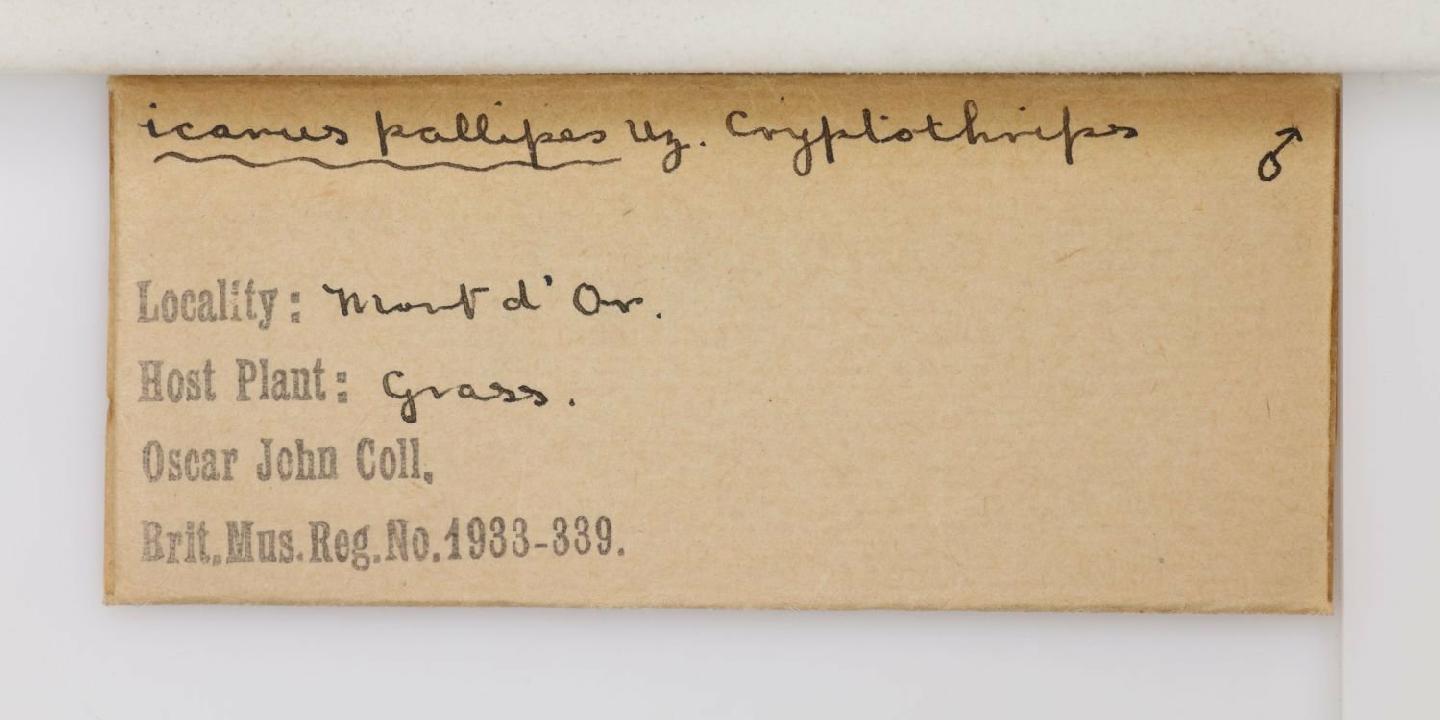 icarus pallipes Uz. Cryptothrips ♂
Locality: Mont d' Or.
Host Plant: Grass.
Oscar John Coll.
Brit.Mus.Reg.No.1933-339.